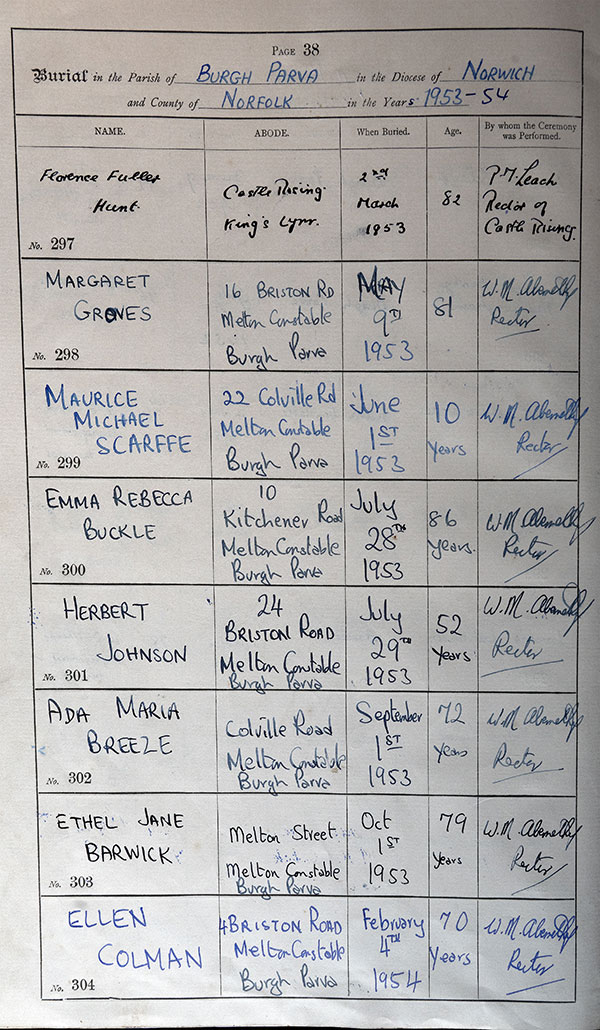 PAGE 38
Burial in the Parish of BURGH PARVA in the Diocese of NORWICH
and County of NORFOLK in the Years 1953-54
NAME. ABODE. When Buried. Age. By whom the Ceremony was Performed.
Florence Fuller
Hunt
No. 297
Castle Rising
King's Lynn.
2nd
March
1953
82
Leach
Rector of
Castle Rising.
MARGARET
GROVES
No. 298
16 BRISTON RD
Melton Constable
Burgh Parva
MAY
9TH
1953
81
W.M. Abernethy
Rector
MAURICE
MICHAEL
SCARFFE
No. 299
22 Colville Rd
Melton Constable
Burgh Parva
June
1ST
1953
10
Years
W.M. Abernethy
Rector
EMMA REBECCA
BUCKLE
No. 300
10
Kitchener Road
Melton Constable
Burgh Parva
July
28TH
1953
86
Years.
W.M. Abernethy
Rector
HERBERT
JOHNSON
No. 301
24
BRISTON ROAD
Melton Constable
Burgh Parva
July
29TH
1953
52
Years
W.M. Abernethy
Rector
ADA MARIA
BREEZE
No. 302
Colville Road
Melton Constable
Burgh Parva
September
1ST
1953
72
Years
W.M. Abernethy
Rector
ETHEL JANE
BARWICK
No. 303
Melton Street
Melton Constable
Burgh Parva
Oct
1ST
1953
79
Years
W.M. Abernethy
Rector
ELLEN
COLMAN
No. 304
4 BRISTON ROAD
Melton Constable
Burgh Parva
February
4TH
1954
70
Years
W.M. Abernethy
Rector